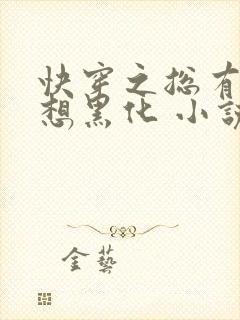 快穿之总有
想黑化 小説
金藝